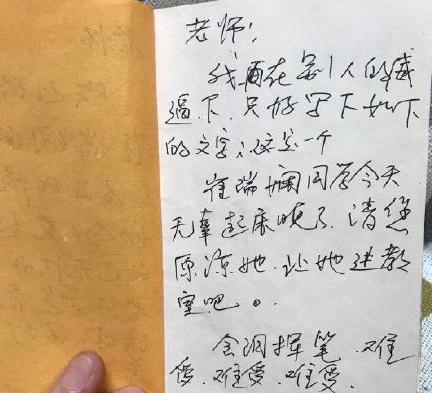 老师：
我面在别人的威
逼下.只好写下如下
的文字；这是一个
崔瑞娴同学今天
无辜起床晚了.请您
原谅她.让她进教
室吧。
含泪挥笔.难
受.难受.难受.